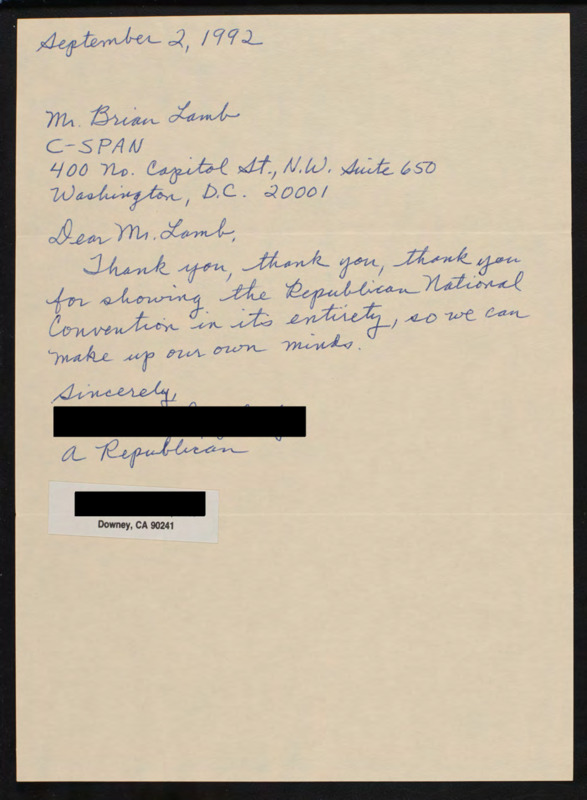 September 2, 1992
Mr. Brian Lamb
C-SPAN
400 No. Capitol St., N.W. Suite 650
Washington, D.C. 20001
Dear Mr. Lamb,
Thank you, thank you, thank you
for showing the Republican National
Convention in its entirety, so we can
make up our own minds.
Sincerely,
a Republican
Downey, CA 90241